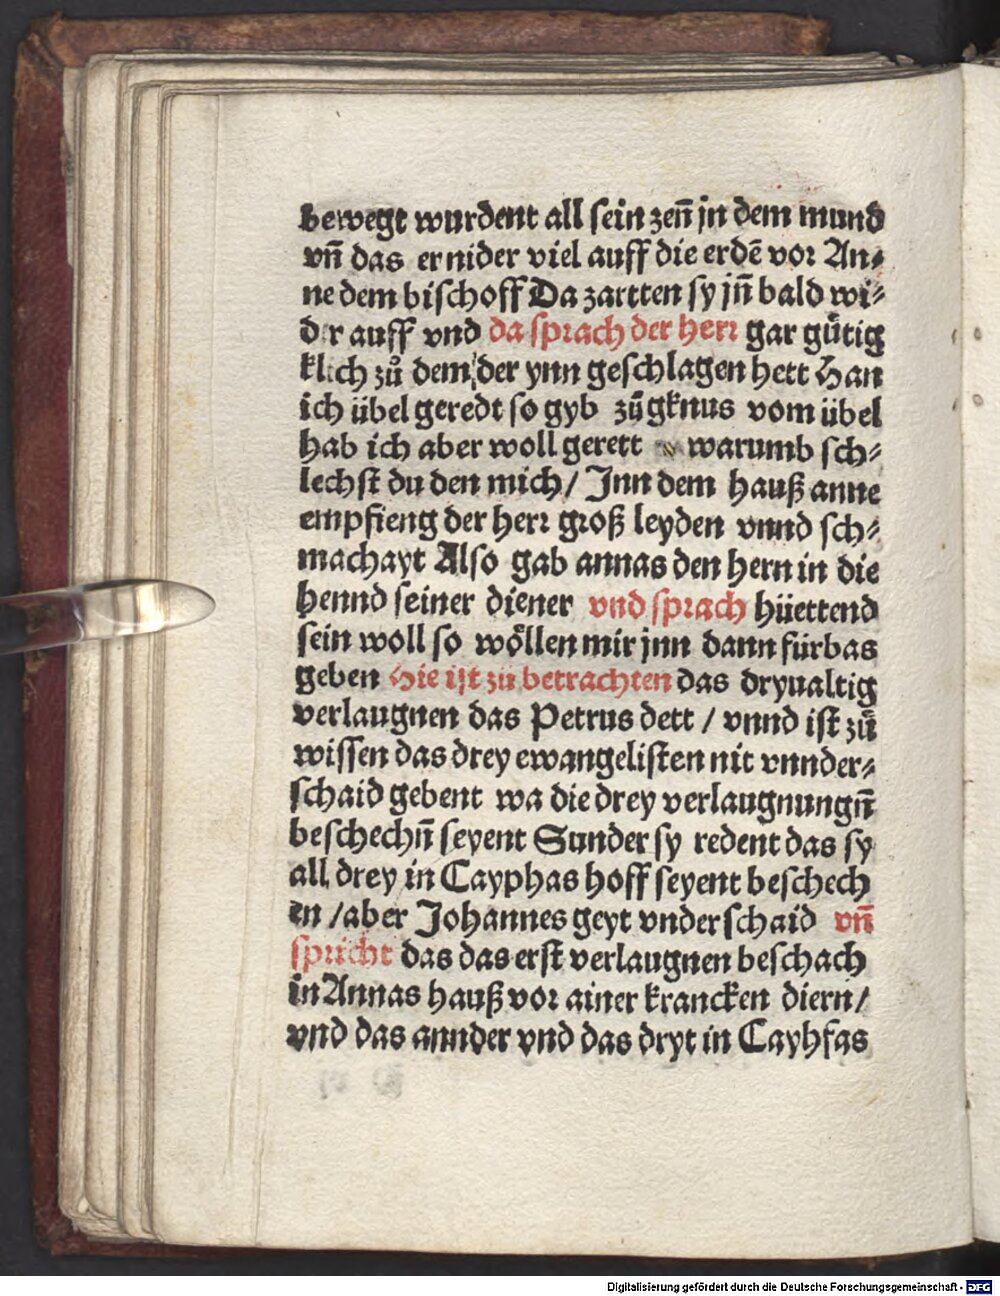 bewegt wurdent all sein zen̄ jn dem mund
vn̄ das er nider viel auff die erdē vor An⸗
ne dem bischoff Da zartten sy jn̄ bald wi⸗
der auff vnd da sprach der herr gar gůtig
klich zů dem der ynn geschlagen hett Han
ich übel geredt so gyb zügknus vom übel
hab ich aber woll gerett warumb sch⸗
lechst du den mich / Jnn dem hauß anne
empfieng der herr groß leyden vnnd sch⸗
machayt Also gab annas den hern in die
hennd seiner diener vnd sprach hüettend
sein woll so wöllen mir jnn dann fürbas
geben Hie ist zü betrachten das dryualtig
verlaugnen das Petrus dett / vnnd ist zů
wissen das drey ewangelisten nit vnnder⸗
schaid gebent wa die drey verlaugnungn̄
beschechn̄ seyent Sunder sy redent das sy
all drey in Cayphas hoff seyent beschech
en / aber Johannes geyt vnderschaid vn̄
spricht das das erst verlaugnen beschach
in Annas hauß vor ainer krancken diern /
vnd das annder vnd das dryt in Cayhfas
Digitalisierung gefördert durch die Deutsche Forschungsgemeinschaft - DFG